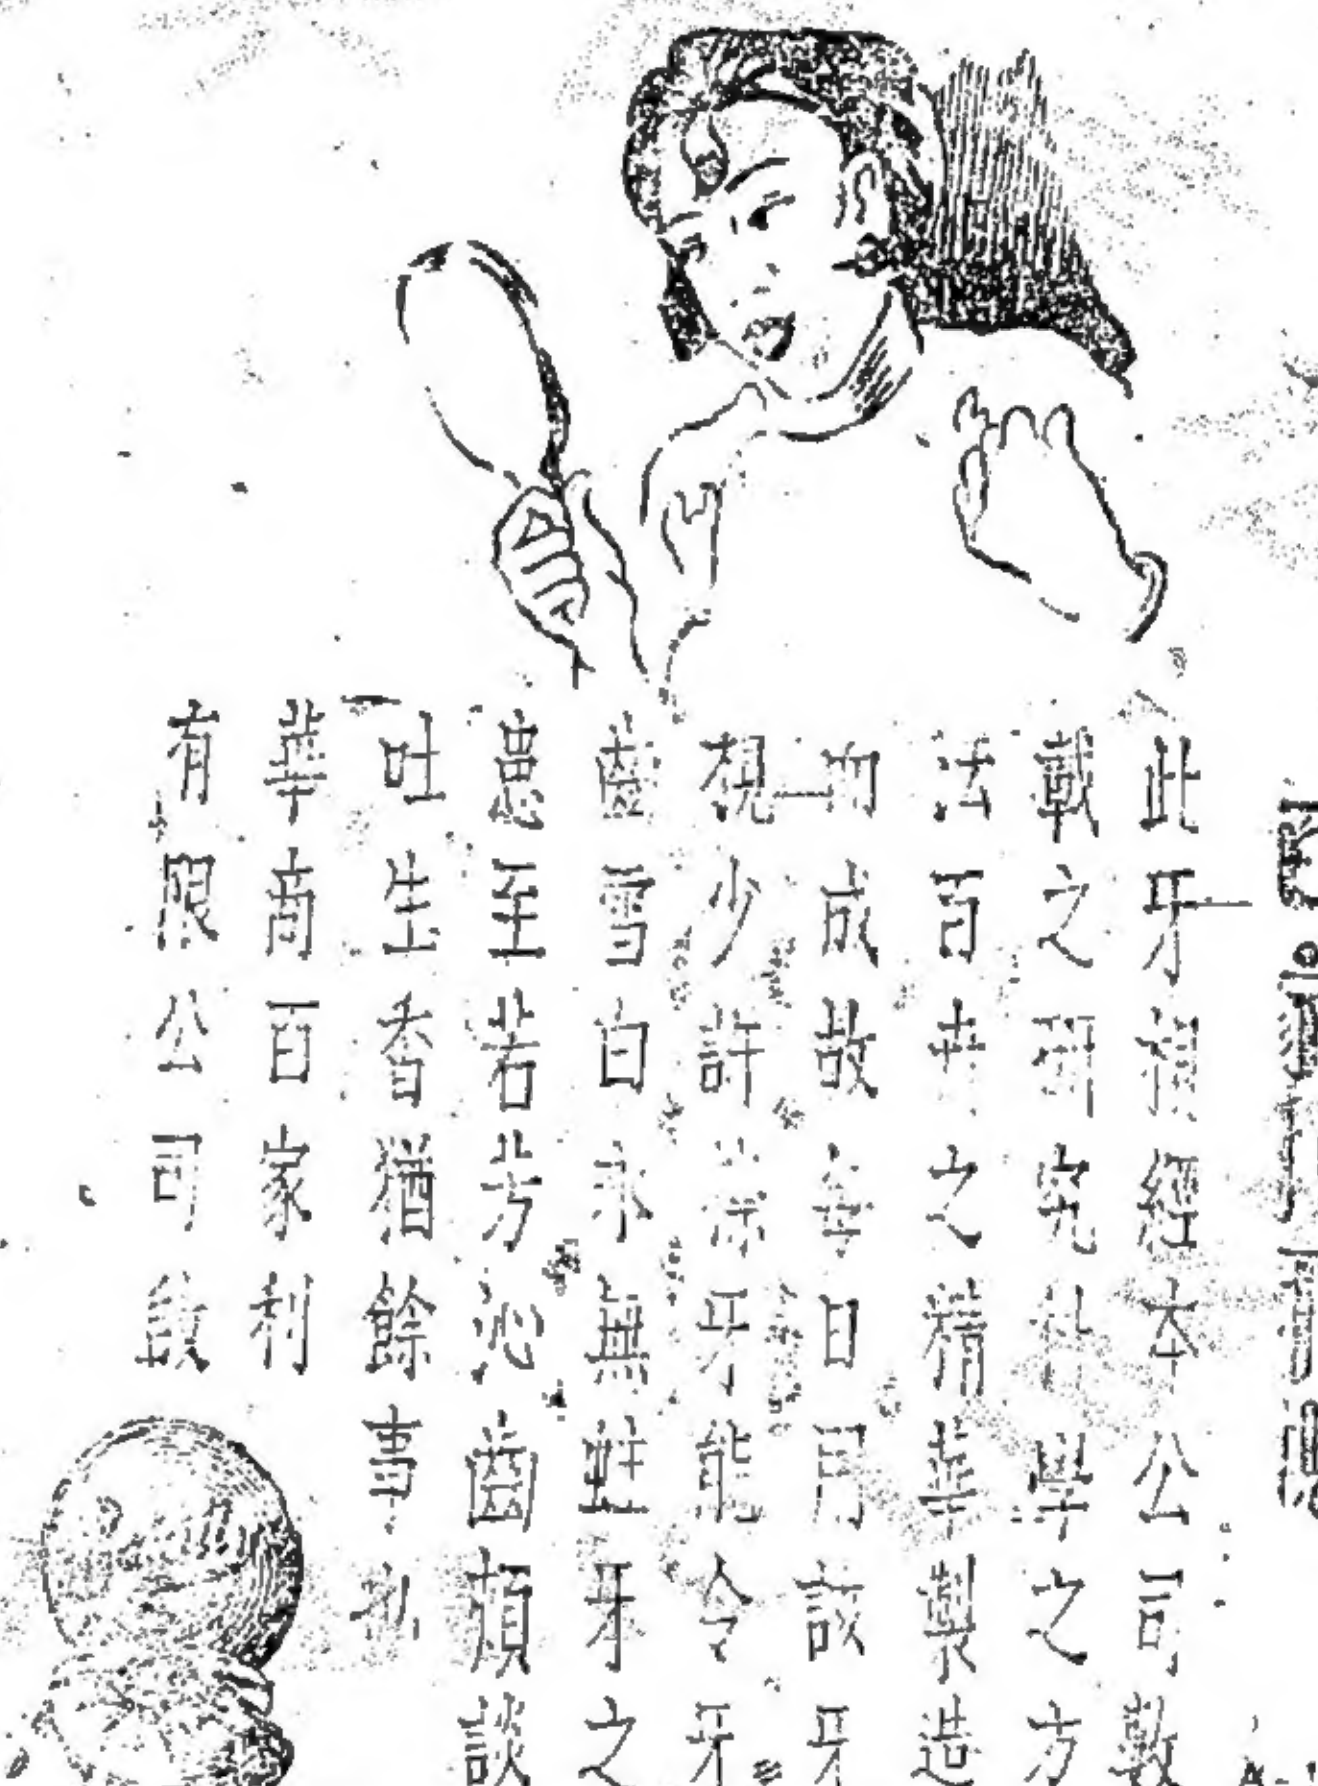 此牙禖經本公司數
載之研究科學之方
法百草之精華製造
而成故每日用該牙
禖少許漱牙能令牙
齒雪白永無蛀牙之
患至若芳沁齒頰談
吐生香猶餘事也
華商百家利
有限公司啟